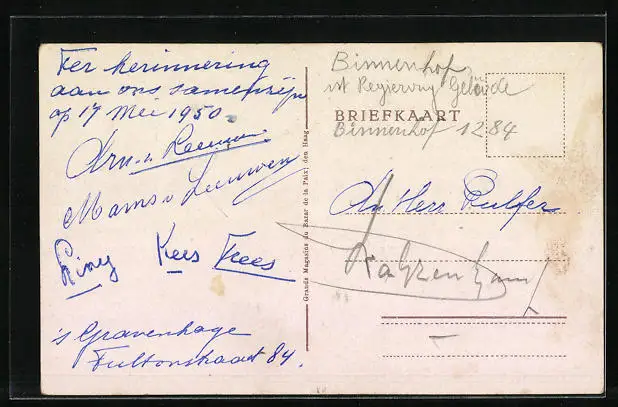 Ter herinnering
aan ons samenzijn
op 17 Mei 1950.
Arn. v. Leeuwen
Mams v Leeuwen
Riny Kees Trees
's Gravenhage
Fultonstraat 84.
Grands Magasins du Bazar de la Paix, den Haag
Binnenhof
ist Regierung Gebäude
BRIEFKAART
Binnenhof 1284
An Herr Pulfer